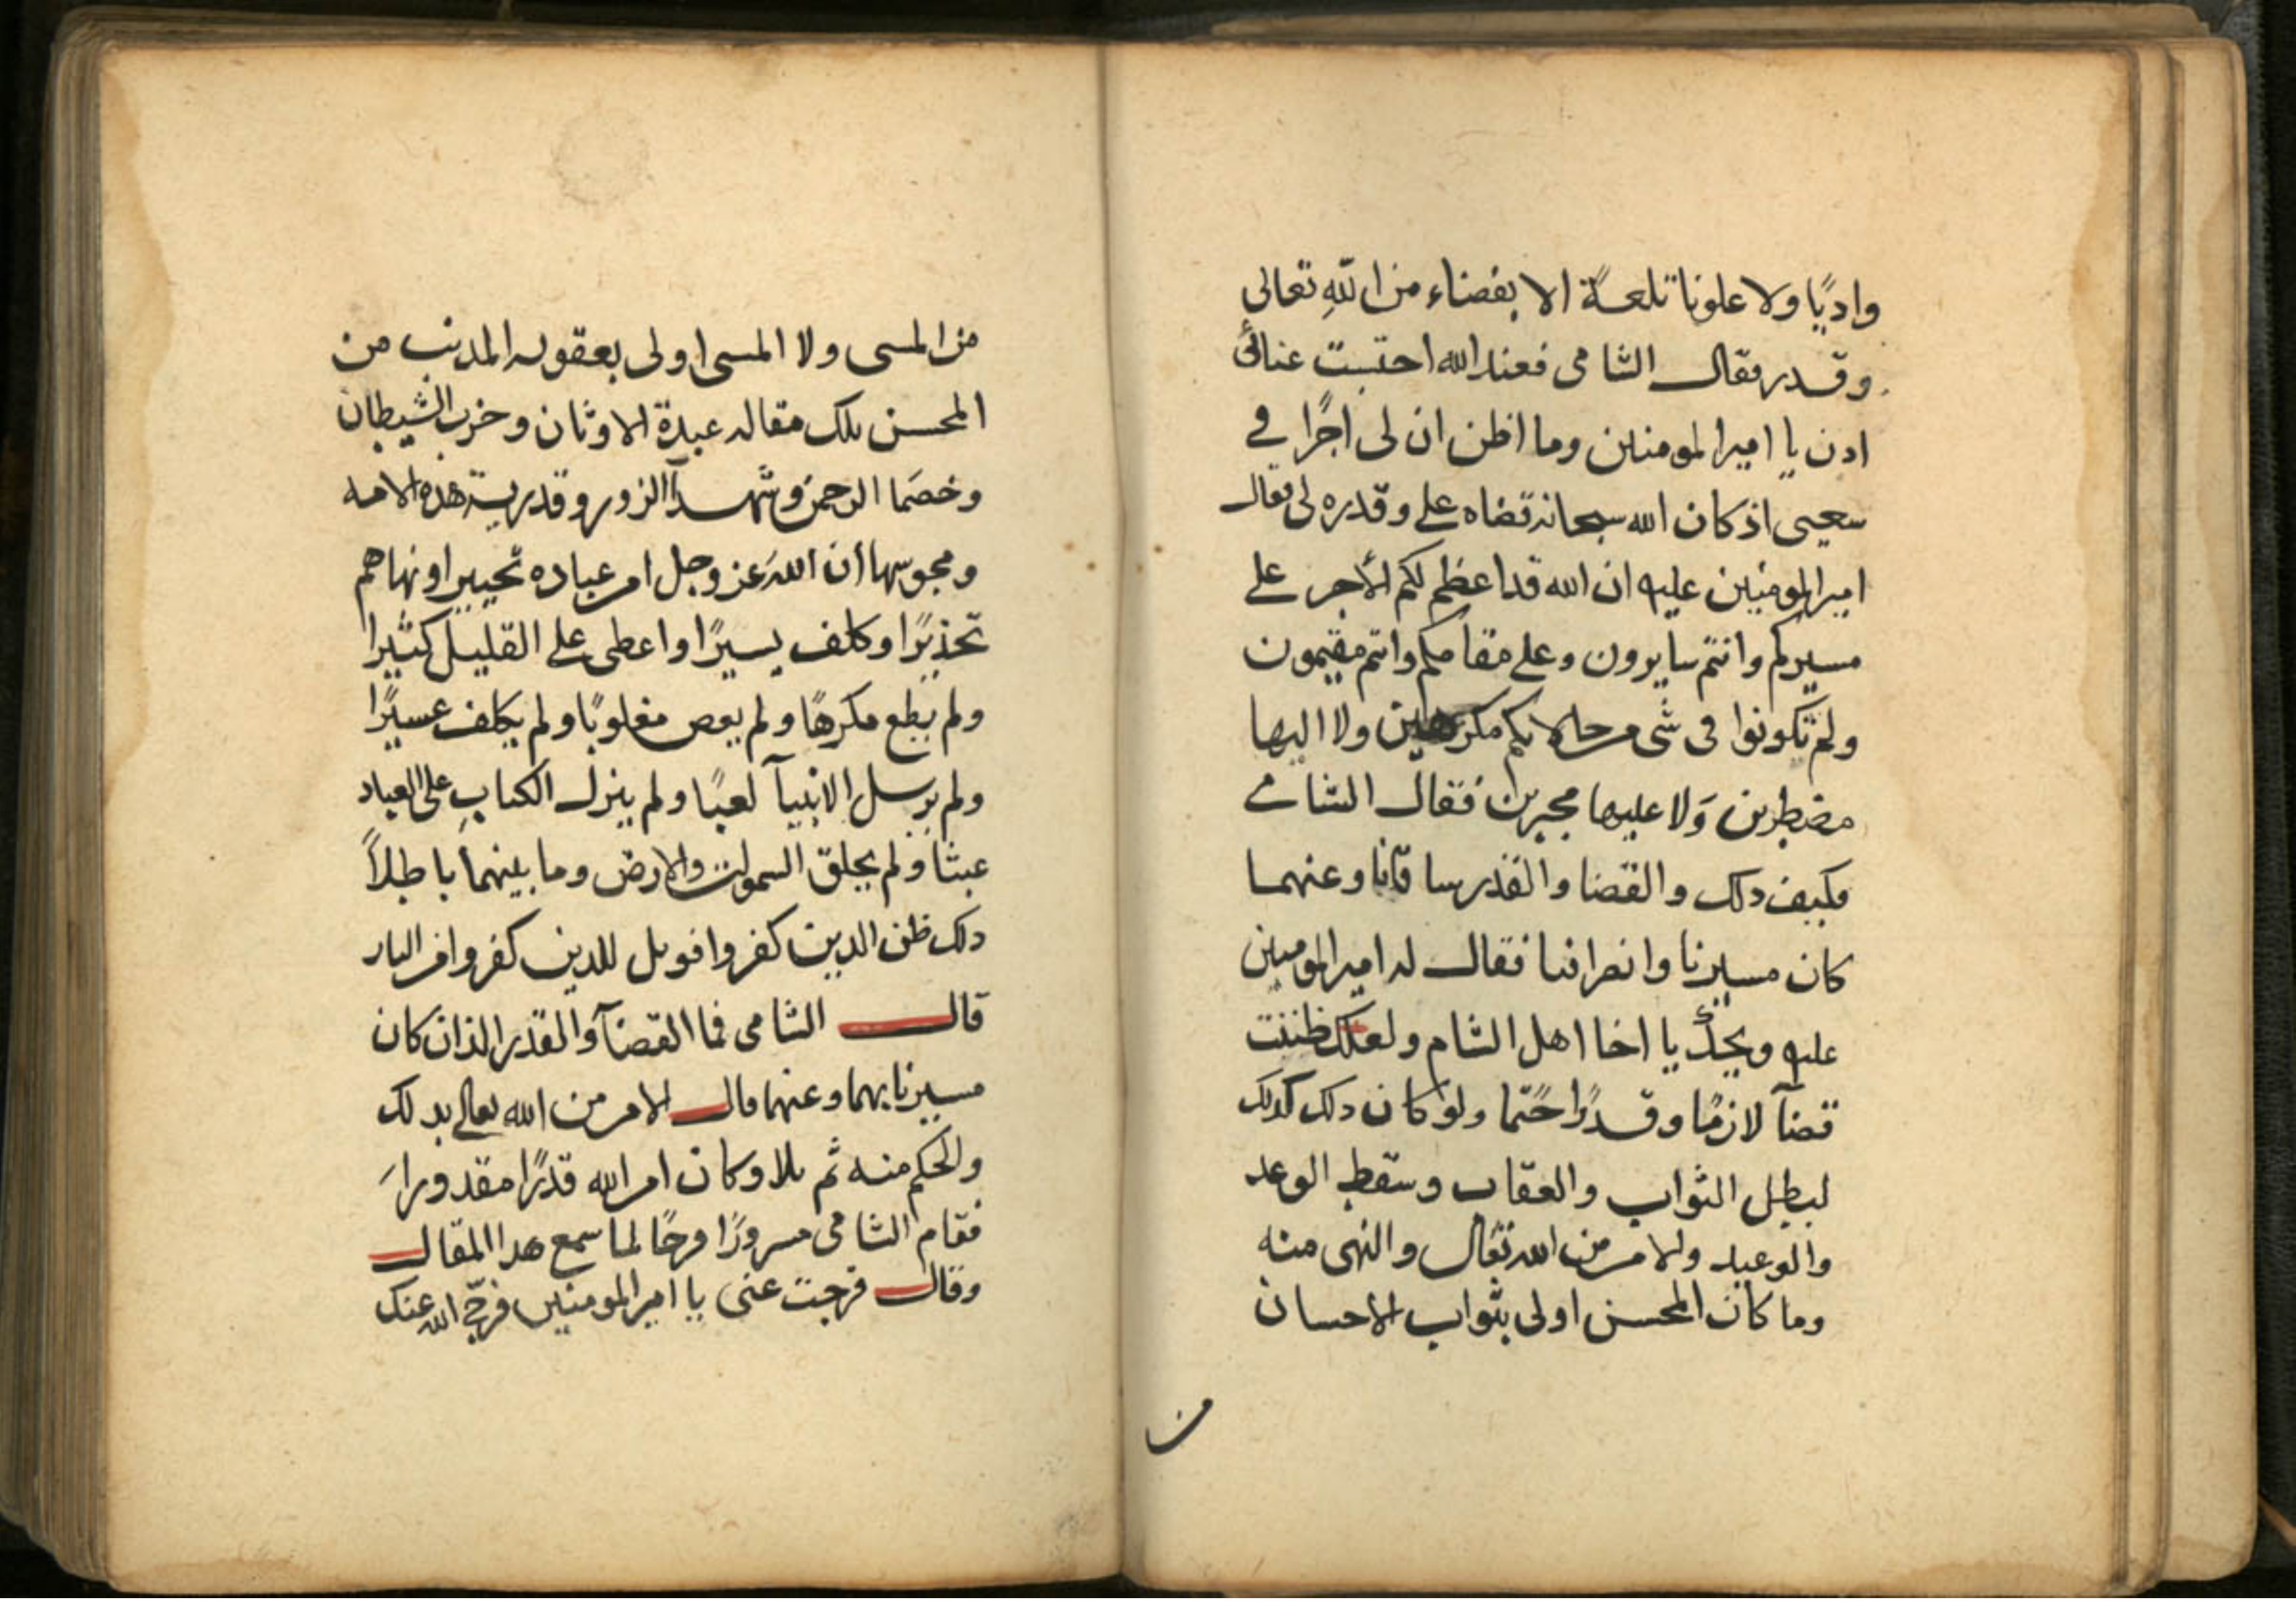 واديًا ولا علونا تلعةً الا بقضاء من اللهِ تعالى
وقدر فقال الشامى فعند الله احتسبت عنائى
اذن يا امير المومنين وما اظن ان لى اجرًا في
سعيى اذ كان الله سبحانه قضاه على وقدره لى فقال
امير المومنين عليه ان الله قد اعظم لكم الأجر على
مسيركم وانتم سايرون وعلى مقامكم وانتم مقيمون
ولم تكونوا فى شى من حالاتكم مكرهين ولا اليها
مضطرين وَلا عليها مجبرين فقال الشامي
فكيف ذلك والقضا والقدر ساقانا وعنهما
كان مسيرنا وانصرافنا فقال له امير المومنين
عليه ويحك يا اخا اهل الشام ولعلك ظننت
قضآ لازمًا وقدرًا حتمًا ولو كان ذلك كذلك
لبطل الثواب والعقاب وسقط الوعد
والوعيد والامر من الله تعالى والنهى منه
وما كان المحسن اولى بثواب الاحسان
من
من المسى ولا المسى اولى بعقوبه المذنب من
المحسن تلك مقاله عبدة الاوثان وحزب الشيطان
وخصَما الرحمن وشهدآ الزور وقدرية هذه الامه
ومجوسها أن اللهَ عز وجل امر عباده تخييرا ونهاهم
تحذيرًا وكلف يسيرًا واعطى على القليل كثيرا
ولم يطع مكرهًا ولم يعص مغلوبًا ولم يكلف عسيرًا
ولم يرسل الانبيآ لعبًا ولم ينزل الكتابِ على العباد
عبثا ولم يخلق السموات والارض وما بينهما باطلاً
ذلك ظن الذين كفروا فويل للذين كفروا من النار
قال الشامى فما القضآ والقدر الذان كان
مسيرنا بهما وعنهما قال الامر من الله تعالى بذلك
والحكم منه ثم تلا وكان امر الله قدرًا مقدورا
فقام الشامى مسرورًا فرحًا لما سمع هذا المقال
وقال فرجت عنى يا امير المومنين فرّج الله عنك